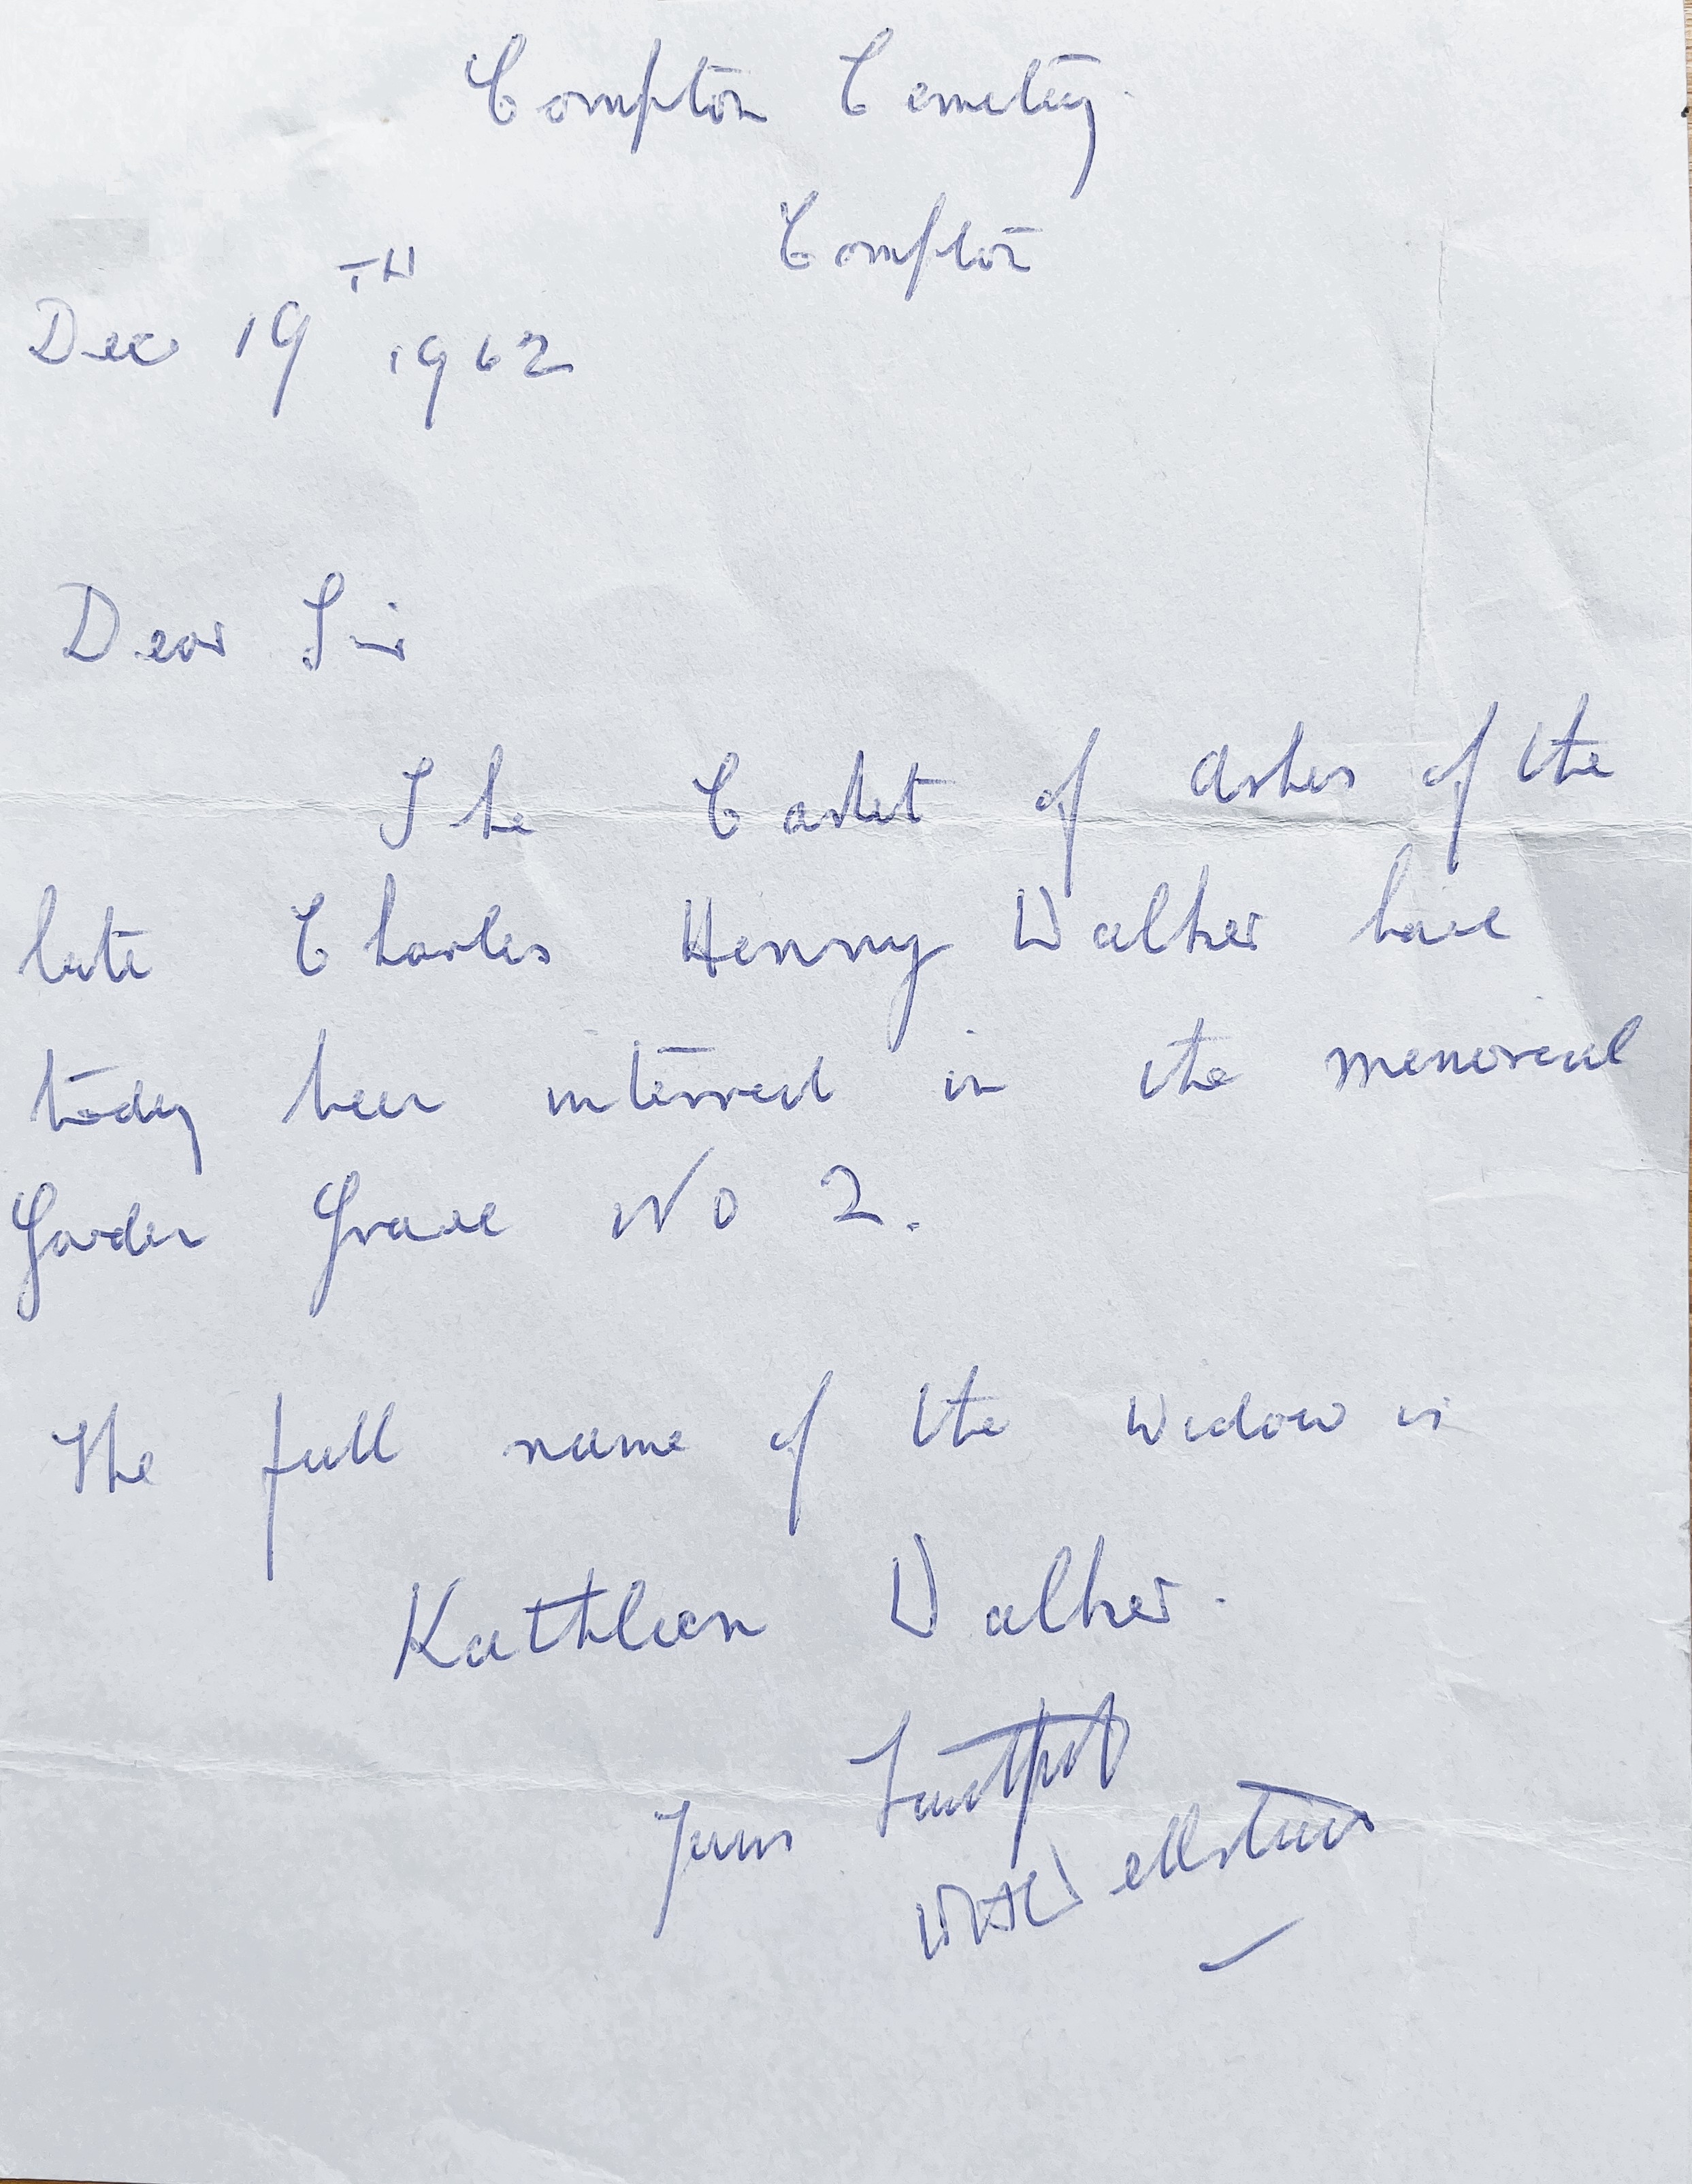 Compton Cemetery.
Compton
Dec 19TH 1962
Dear Sir
The Casket of Ashes of the
late Charles Henry Walker have
today been interred in the memorial
Garden Grave No 2.
The full name of the Widow is
Kathleen Walker.
Yours Faithful